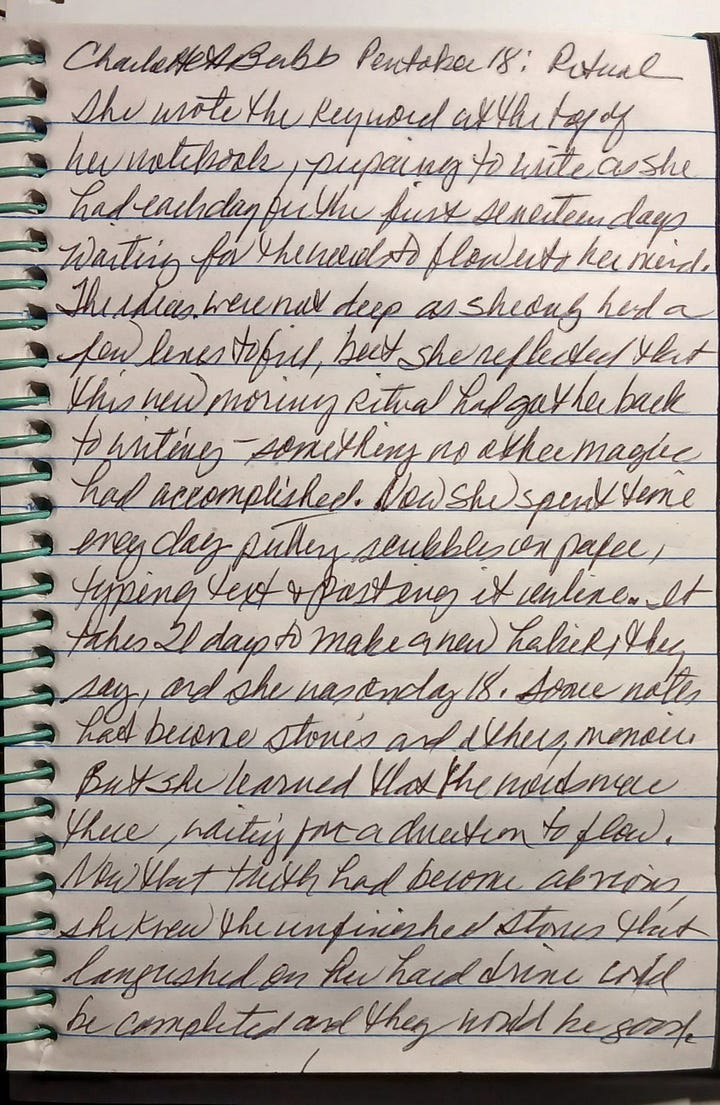 Charlotte Babb Pentober 18: Ritual
She wrote the keyword at the top of
her notebook, preparing to write as she
had each day for the first seventeen days
Waiting for the words to flow into her mind.
The ideas were not deep as she only had a
few lines to fill, but she reflected that
this new morning ritual had got her back
to writing - something no other magic
had accomplished. Now she spent time
every day putting scribbles on paper,
typing text & posting it online. It
takes 21 days to make a new habit, they
say, and she was on day 18. Some notes
had become stories and others, memoir.
But she learned that the words were
there, waiting for a direction to flow.
Now that truth had become obvious,
she knew the unfinished stories that
languished on her hard drive could
be completed and they would be good.